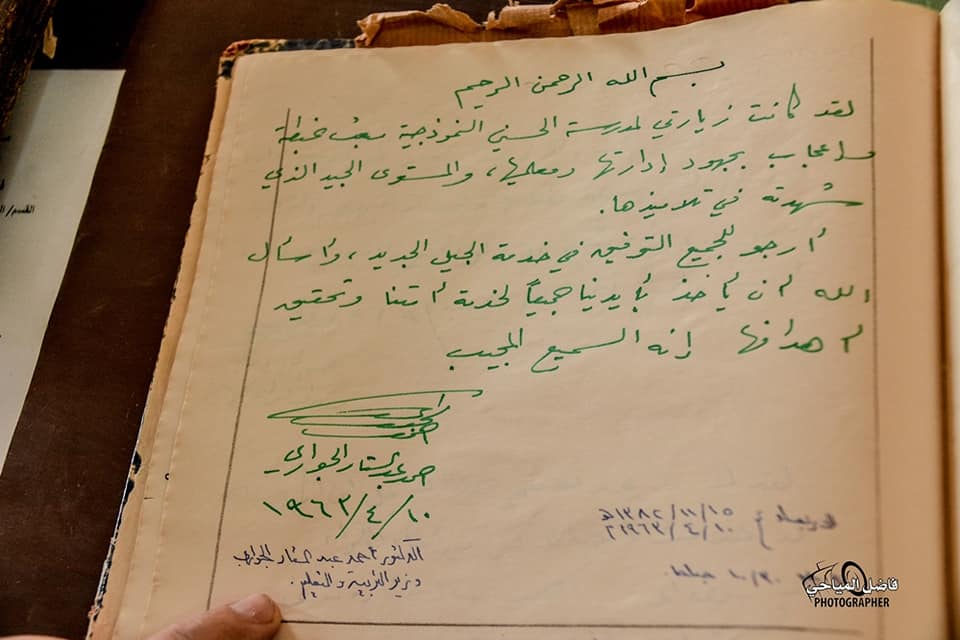 بسم الله الرحمن الرحيم
لقد كانت زيارتي لمدرسة الحسني النموذجية مبعث غبطة
وإعجاب بجهود إدارتها ومعلميها، والمستوى الجيد الذي
شهدته في تلاميذها.
أرجو للجميع التوفيق في خدمة الجيل الجديد، وأسأل
الله أن يأخذ بأيدينا جميعاً لخدمة أمتنا وتحقيق
أهدافها إنه السميع المجيب
أحمد عبد الستار الجواري
١٩٦٣/٤/١٠
الدكتور أحمد عبد الستار الجواري
وزير التربية والتعليم.
الاربعاء
١٣٨٢/١١/١٥ هـ
١٩٦٣/٤/١٠ م
١٠/٣٠
القسم / ال
فاضل المياحي
PHOTOGRAPHER